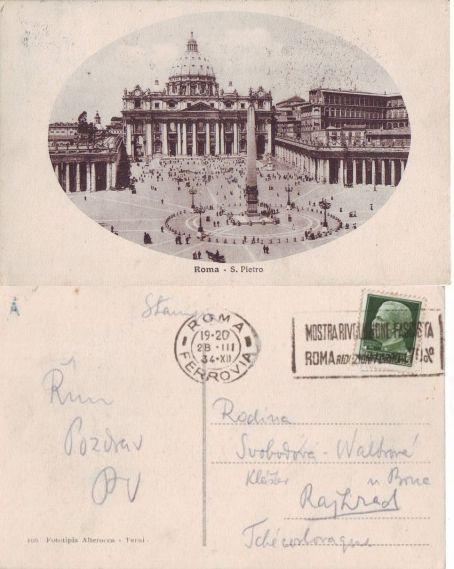 Roma - S. Pietro
A
ROMA
19-20
28 · III
34 · XII
FERROVIA
MOSTRA RIVOLUZIONE FASCISTA
ROMA
Řím
Pozdrav
Rodina
Svobodová - Waltrová
Klášter u Brna
Rajhrad
Tchécoslovaque
106 Fototipia Alterocca - Terni